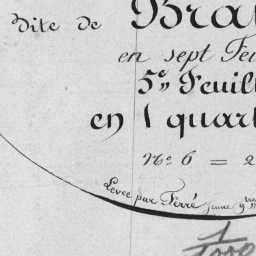 dite de Bra
en sept Feu
5e Feuill
en 1 quart
No 6 = 2
Levée par Ferré jeune
1
1000